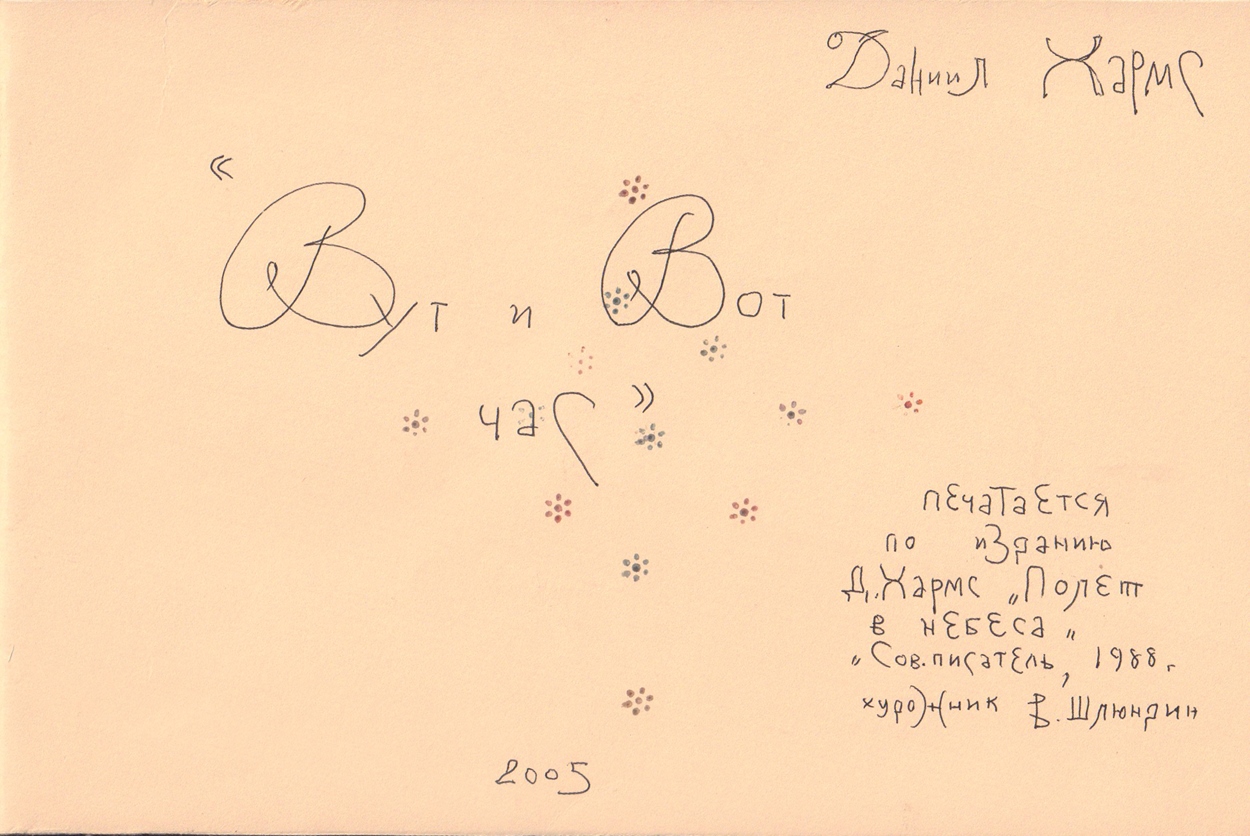 Даниил Хармс
«Вут и Вот
час»
печатается
по изданию
Д.Хармс „Полет
в небеса"
„Сов.писатель, 1988г
художник В.Шлюндин
2005